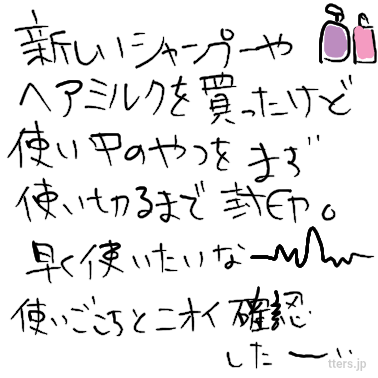 新しいシャーンプーや
ヘアミルクを買ったけど
使い中のやつをまず
使い切るまで封印。
早く使いたいなー
使いごこちとニオイ確認
したーい
tters.jp